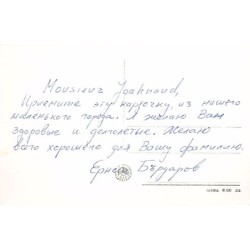 Monsieur Joahnaud,
Приемите эту карточку, из нашего
маленького города. Я желаю Вам
здоровье и долголетие. Желаю
всего хорошего для Вашу фамилию.
Ернест Бърдаров